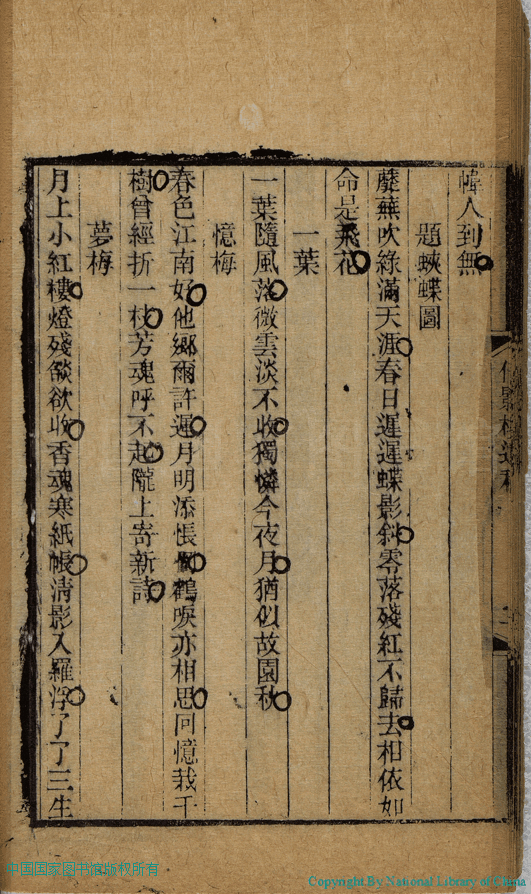 幃人到無
題蛺蝶圖
蘼蕪吹綠滿天涯春日遲遲蝶影斜零落殘紅不歸去相依如
命是飛花
一葉
一葉隨風落微雲淡不收獨憐今夜月猶似故園秋
憶梅
春色江南好他鄉爾許遲月明添悵鶴唳亦相思回憶栽千
樹曾經折一枝芳魂呼不起隴上寄新詩
夢梅
月上小紅樓燈殘燄欲收香魂寒紙帳清影入羅浮了了三生
影樓
中国国家图书馆版权所有
Copyright By National Library of China